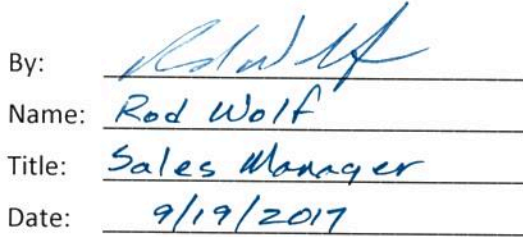 By: Rod Wolf
Name: Rod Wolf
Title: Sales Manager
Date: 9/19/2017